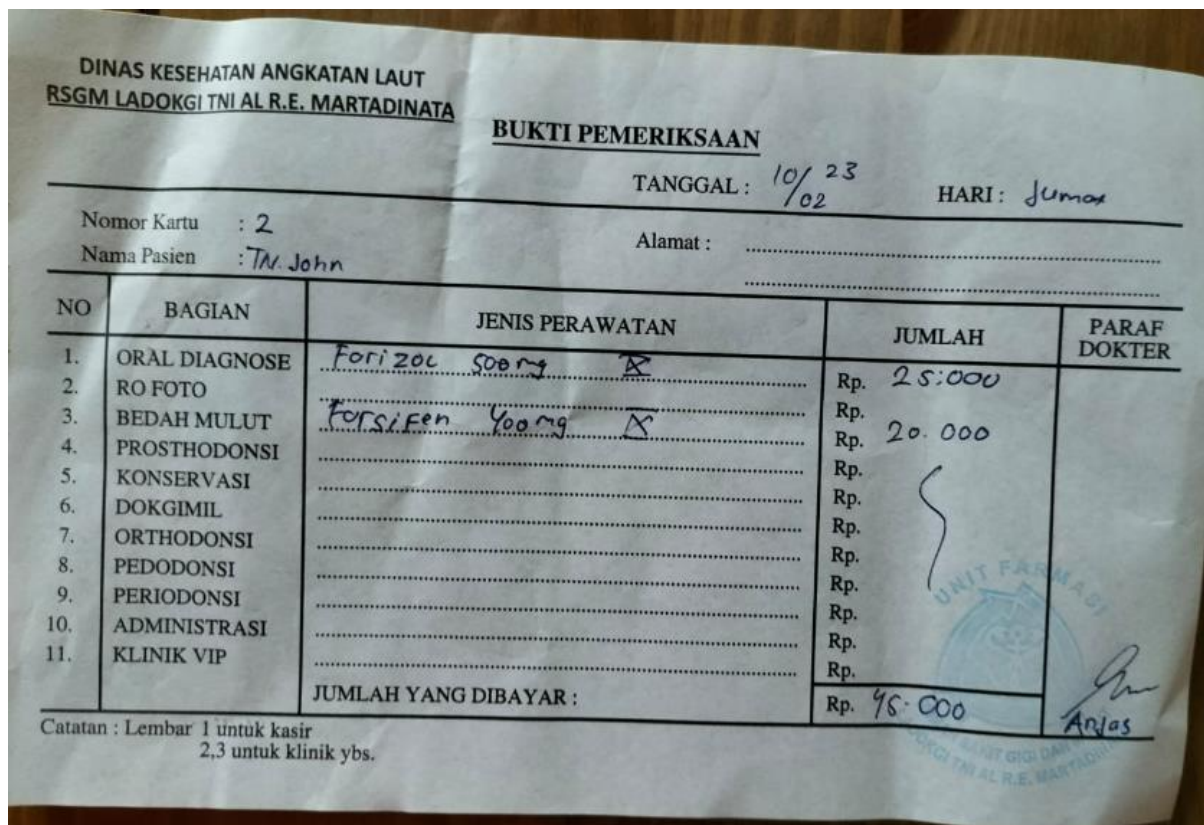 DINAS KESEHATAN ANGKATAN LAUT
RSGM LADOKGI TNI AL R.E. MARTADINATA
BUKTI PEMERIKSAAN
TANGGAL : 10/02 23 HARI : Jumat
Nomor Kartu : 2 Alamat :
Nama Pasien : TN. John
NO BAGIAN JENIS PERAWATAN JUMLAH PARAF DOKTER
1. ORAL DIAGNOSE Forizol 500mg X Rp. 25.000
2. RO FOTO Rp.
3. BEDAH MULUT Forsifen 400mg X Rp. 20.000
4. PROSTHODONSI Rp.
5. KONSERVASI Rp.
6. DOKGIMIL Rp.
7. ORTHODONSI Rp.
8. PEDODONSI Rp.
9. PERIODONSI Rp.
10. ADMINISTRASI Rp.
11. KLINIK VIP Rp.
JUMLAH YANG DIBAYAR : Rp. 45.000 Anjas
Catatan : Lembar 1 untuk kasir
2,3 untuk klinik ybs.
UNIT FARMASI
SAKIT GIGI DAN
LADOKGI TNI AL R.E. MARTADINATA